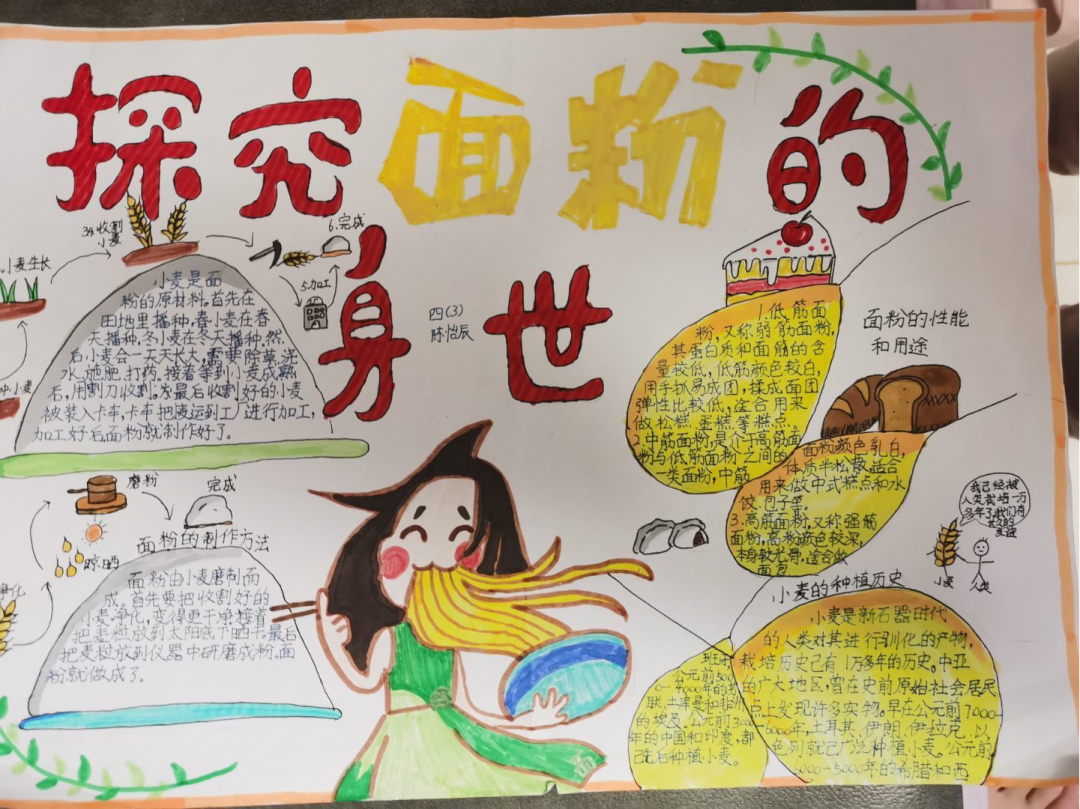 探究面粉的
身世
四(3)
陈怡辰
3.收割
小麦
小麦生长
小麦
5.加工
6.完成
小麦是面
粉的原材料,首先在
田地里播种,春小麦在春
天播种,冬小麦在冬天播种,然
后小麦会一天天长大,需要除草、浇
水、施肥、打药,接着等到小麦成熟
后,用割刀收割,为最后收割好的小麦
被装入卡车,卡车把麦运到工厂进行加工,
加工好后面粉就制作好了。
净化
晾晒
磨粉
完成
面粉的制作方法
面粉由小麦磨制而
成,首先要把收割好的
小麦净化,变得更干净接着
把麦粒放到太阳底下晒干,最后
把麦粒放到仪器中研磨成粉,面
粉就做成了。
面粉的性能
和用途
1.低筋面
粉,又称弱筋面粉,
其蛋白质和面筋的含
量较低,低筋颜色较白,
用手抓易成团,揉成面团
弹性比较低,适合用来
做松糕、蛋糕等糕点。
2.中筋面粉,是介于高筋面
粉与低筋面粉之间的
一类面粉,中筋
面粉颜色乳白,
体质半松散适合
用来做中式糕点和水
饺、包子等。
3.高筋面粉,又称强筋
面粉,高粉颜色较深,
本身较光滑,适合做
面包
我已经被
人类栽培一万
多年了,我们有
友谊
小麦
人类
小麦的种植历史
小麦是新石器时代
的人类对其进行驯化的产物,
栽培历史已有1万多年的历史。中亚
的广大地区,曾在史前原始社会居民
点上发现许多实物。早在公元前7000-
6000年,土耳其、伊朗、伊拉克、以
色列就已广泛种植小麦。公元前
6000-5000年的希腊和西
班牙
公元前500
0-4000年的苏
联、土库曼和非洲
的埃及,公元前3000
年的中国和印度,都
已先后种植小麦。